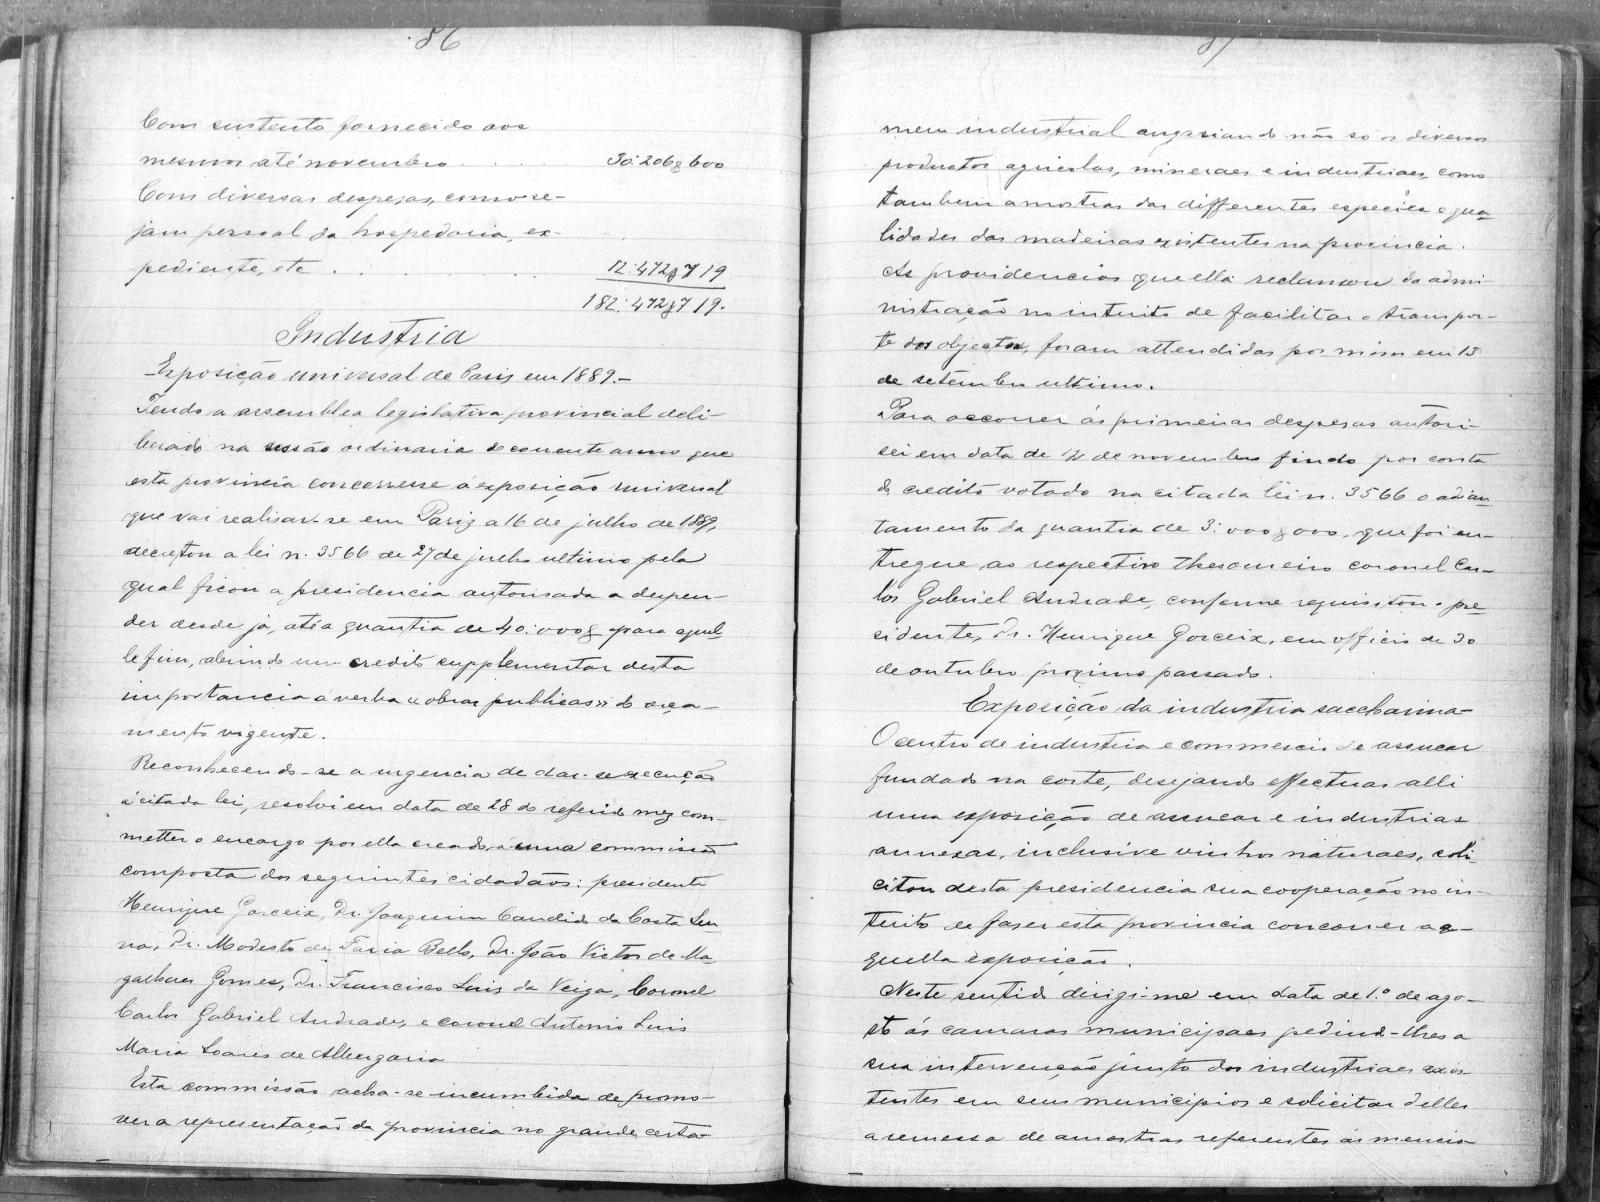 86
Com sustento fornecido aos
mesmos até novembro . . . . 30:206$600
Com diversas despezas, como se-
jam pessoal da hospedaria, ex-
pediente, etc . . . . . . 12:472$719
182:472$719.
Industria
Exposição universal de Pariz em 1889.-
Tendo a assemblea legislativa provincial deli-
berado na sessão ordinaria do corrente anno que
esta provincia concorresse á exposição universal
que vai realisar-se em Pariz a 16 de julho de 1889,
decretou a lei n. 3566 de 27 de julho ultimo pela
qual ficou a presidencia autorisada a despen-
der desde já, até a quantia de 40:000$ para aquel
le fim, abrindo um credito supplementar desta
importancia á verba «obras publicas» do orça-
mento vigente.
Reconhecendo-se a urgencia de dar-se execução
á citada lei, resolvi em data de 28 do referido mez com-
metter o encargo por ella creado, á uma commissão
composta dos seguintes cidadãos: presidente
Henrique Gorceix, Dr. Joaquim Candido da Costa Sen
na, Dr. Modesto de Faria Bello, Dr. João Victor de Ma-
galhaes Gomes, Dr. Francisco Luiz da Veiga, Coronel
Carlos Gabriel Andrade, e coronel Antonio Luis
Maria Soares de Albergaria
Esta commissão acha-se incumbida de promo-
ver a representação da provincia no grande certa-
87
mem industrial angariando não so os diversos
productos agricolas, mineraes e industriaes, como
tambem amostras das differentes especies e qua-
lidades das madeiras existentes na provincia.
As providencias que ella reclamou da admi-
nistração no intuito de facilitar o transpor-
te dos objectos, foram attendidas por mim em 13
de setembro ultimo.
Para occorrer ás primeiras despezas autori-
sei em data de 12 de novembro findo por conta
do credito votado na citada lei n. 3566 o adian-
tamento da quantia de 3:000$000, que foi en-
tregue ao respectivo thesoureiro coronel Car-
los Gabriel Andrade, conforme requisitou o pre-
sidente, Dr. Henrique Gorceix, em officio de 30
de outubro proximo passado.
Exposição da industria saccharina-
O centro de industria e commercio de assucar
fundado na corte, desejando effectuar alli
uma exposição de assucar e industrias
annexas, inclusive vinhos naturaes, soli-
citou desta presidencia sua cooperação no in-
tuito de fazer esta provincia concorrer a a-
quella exposição.
Neste sentido dirigi-me em data de 1.º de ago-
sto ás camaras municipaes pedindo-lhes a
sua intervenção junto dos industriaes exis-
tentes em seus municipios e solicitar delles
a remessa de amostras referentes ás mencio-